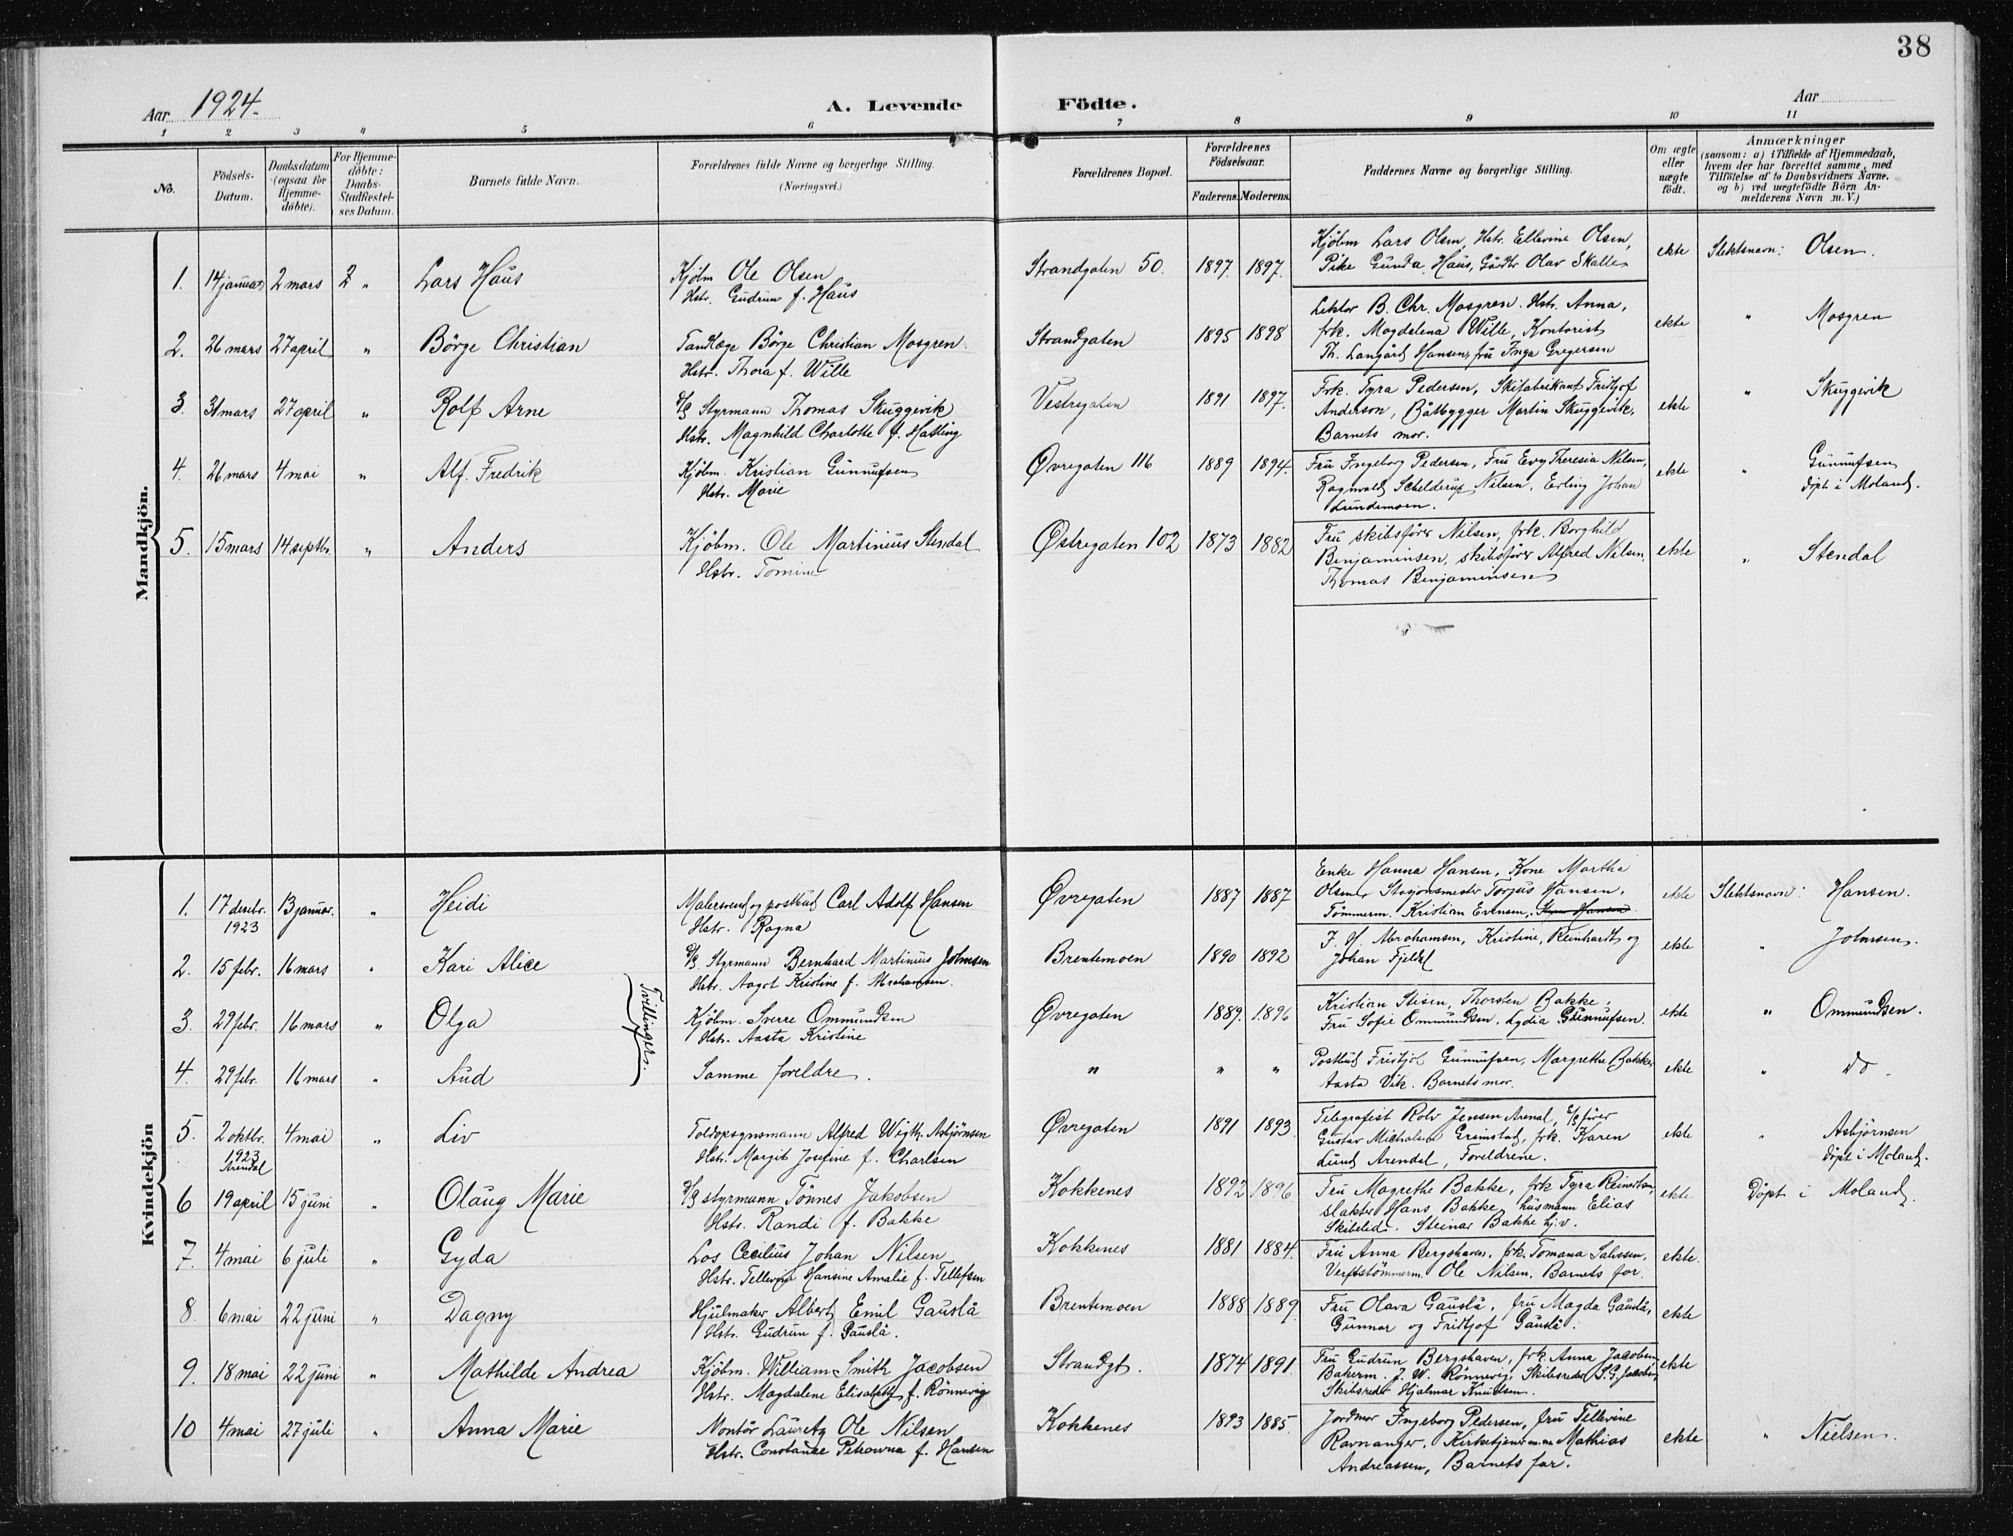 38
Aar 1924.
A. Levende Födte.
Aar
1 2 3 4 5 6 7 8 9 10 11
No.
Födsels-Datum.
Daabsdatum (ogsaa for Hjemme-döbte).
For Hjemme-döbte: Daabs-Stadfæstel-ses Datum.
Barnets fulde Navn.
Forældrenes fulde Navne og borgerlige Stilling. (Næringsvei.)
Forældrenes Bopæl.
Forældrenes Födselsaar.
Faderens. Moderens.
Faddernes Navne og borgerlige Stilling.
Om ægte eller uægte födt.
Anmærkninger
(saasom: a) i Tilfælde af Hjemmedaab,
hvem der har forrettet samme, med
Tilföielse af to Daabsvidners Navne.
og b) ved uægtefödte Börn An-
melderens Navn m. V.)
Mandkjön.
1. 14 januar 2 mars 2 " Lars Haus
Kjöbm Ole Olsen
Hstr. Gudrun f. Haus
Strandgaten 50. 1897. 1897.
Kjöbm Lars Olsen, Hstr. Ellevine Olsen,
Pike Gunda Haus, Gårdbr Olav Skalle
ekte Slektsnavn: Olsen.
2. 26 mars 27 april " Börge Christian
Tandlæge Börge Christian Mosgren.
Hstr. Thora f. Wille
Strandgaten 1895 1898
Lektor B. Chr. Mosgren. Hstr. Anna,
frk. Magdelena Wille, Kontorist
Th. Langård Hansen, fru Inga Gregersen
ekte " Mosgren
3. 31 mars 27 april " Rolf Arne
Styrmann Thomas Skuggevik
Hstr. Magnhild Charlotte f. Hatling
Vestregaten 1891 1897.
Frk. Tyra Pedersen, Skifabrikant Fridtjof
Anderson, Båtbygger Martin Skuggevik,
Barnets mor.
ekte " Skuggevik
4. 26 mars 4 mai " Alf Fredrik
Kjöbm. Kristian Gunnufsen
Hstr. Marie
Øvregaten 116 1889 1894.
Fru Ingeborg Pedersen, Fru Evy Theresia Nilsen,
Ragnvald Schelderup Nilsen, Erling Johan
Gundersen.
ekte " Gunnufsen
döpt i Moland.
5. 15 mars 14 septbr. " Anders
Kjöbm. Ole Martinius Stendal
Hstr. Tomine
Østregaten 102 1873 1882
Fru skibsförer Nilsen, frk. Borghild
Benjaminsen, skibsförer Alfred Nilsen,
Thomas Benjaminsen
ekte " Stendal
Kvindekjön
1. 17 desebr. 1923 13 januar. " Heidi
Malersvend og postbud Carl Adolf Hansen
Hstr. Ragna
Øvregaten 1887 1887
Enke Hanna Hansen, Kone Martha
Olsen, Stasjonsmester Torjus Hansen,
Tömmerm. Kristian Evensen,
ekte Slektsnavn: Hansen.
2. 15 febr. 16 mars " Kari Alice
Styrmann Bernhard Martinius Johnsen
Hstr. Aagot Kristine f. Abrahamsen.
Brentemoen 1890 1892
J. H. Abrahamsen, Kristine, Reinhardt og
Johan Fjeldal
ekte " Johnsen.
Tvillinger.
3. 29 febr. 16 mars " Olga
Kjöbm. Sverre Ommundsen
Hstr. Aasta Kristine
Øvregaten 1889. 1896
Kristian Stisen, Thorsten Bakke,
Fru Sofie Ommundsen, Lydia Gunnufsen.
ekte " Ommundsen.
4. 29 febr. 16 mars " Aud
Samme foreldre.
" " "
Postbud Fridtjof Gunnufsen, Margrethe Bakke,
Aasta Vik. Barnets mor.
ekte " do.
5. 2 oktbr. 1923 Arendal 4 mai " Liv
Toldopsynsmann Alfred Wigth. Asbjørnsen
Hstr. Margit Josefine f. Charlsen
Øvregaten 1891 1893
Telegrafist Rolv Jensen Arendal, förer
Gustav Michalsen Grimstad, frk. Karen
Lund Arendal, Foreldrene.
ekte " Asbjørnsen
döpt i Moland.
6 19 april 15 juni " Olaug Marie
styrmann Tönnes Jakobsen
Hstr. Randi f. Bakke
Kokkenes 1892 1896
Fru Magrethe Bakke, frk Tyra Reinertsen,
slakter Hans Bakke, husmann Elias
Skilsled. Steinar Bakke
ekte Döpt i Moland.
7. 4 mai 6 juli " Gyda
Los Cecilius Johan Nilsen
Hstr. Tellevine Hansine Amalie f. Tellefsen
Kokkenes 1881 1884.
Fru Anna Bergshaven, frk. Tomana Salvesen,
Verftstömmerm. Ole Nilsen, Barnets far.
ekte.
8. 6 mai 22 juni " Dagny
Hjulmaker Albert Emil Gauslå
Hstr. Gudrun f. Gauslå.
Brentemoen 1888 1889.
Fru Olava Gauslå, fru Magda Gauslå,
Gunnar og Fridtjof Gauslå.
ekte
9. 18 mai 22 juni " Mathilde Andrea
Kjöbm. William Smith Jacobsen
Hstr. Magdalene Elisabeth f. Rönnevig
Strandgt. 1874 1891
Fru Gudrun Bergshaven, frk. Anna Jacobsen,
Bakerm. J. W. Rönnevig, Skibsreder S. G. Jacobsen,
Skibsreder Hjalmar Knudsen.
ekte
10 4 mai 27 juli " Anna Marie
Montör Lauretz Ole Nilsen
Hstr. Constance Petrowna f. Hansen
Kokkenes 1893 1885.
Jordmor Ingeborg Pedersen, fru Tellevine
Ravnanger, Kirketjener m.m. Mathias
Andreassen, Barnets far.
ekte " Nielsen.